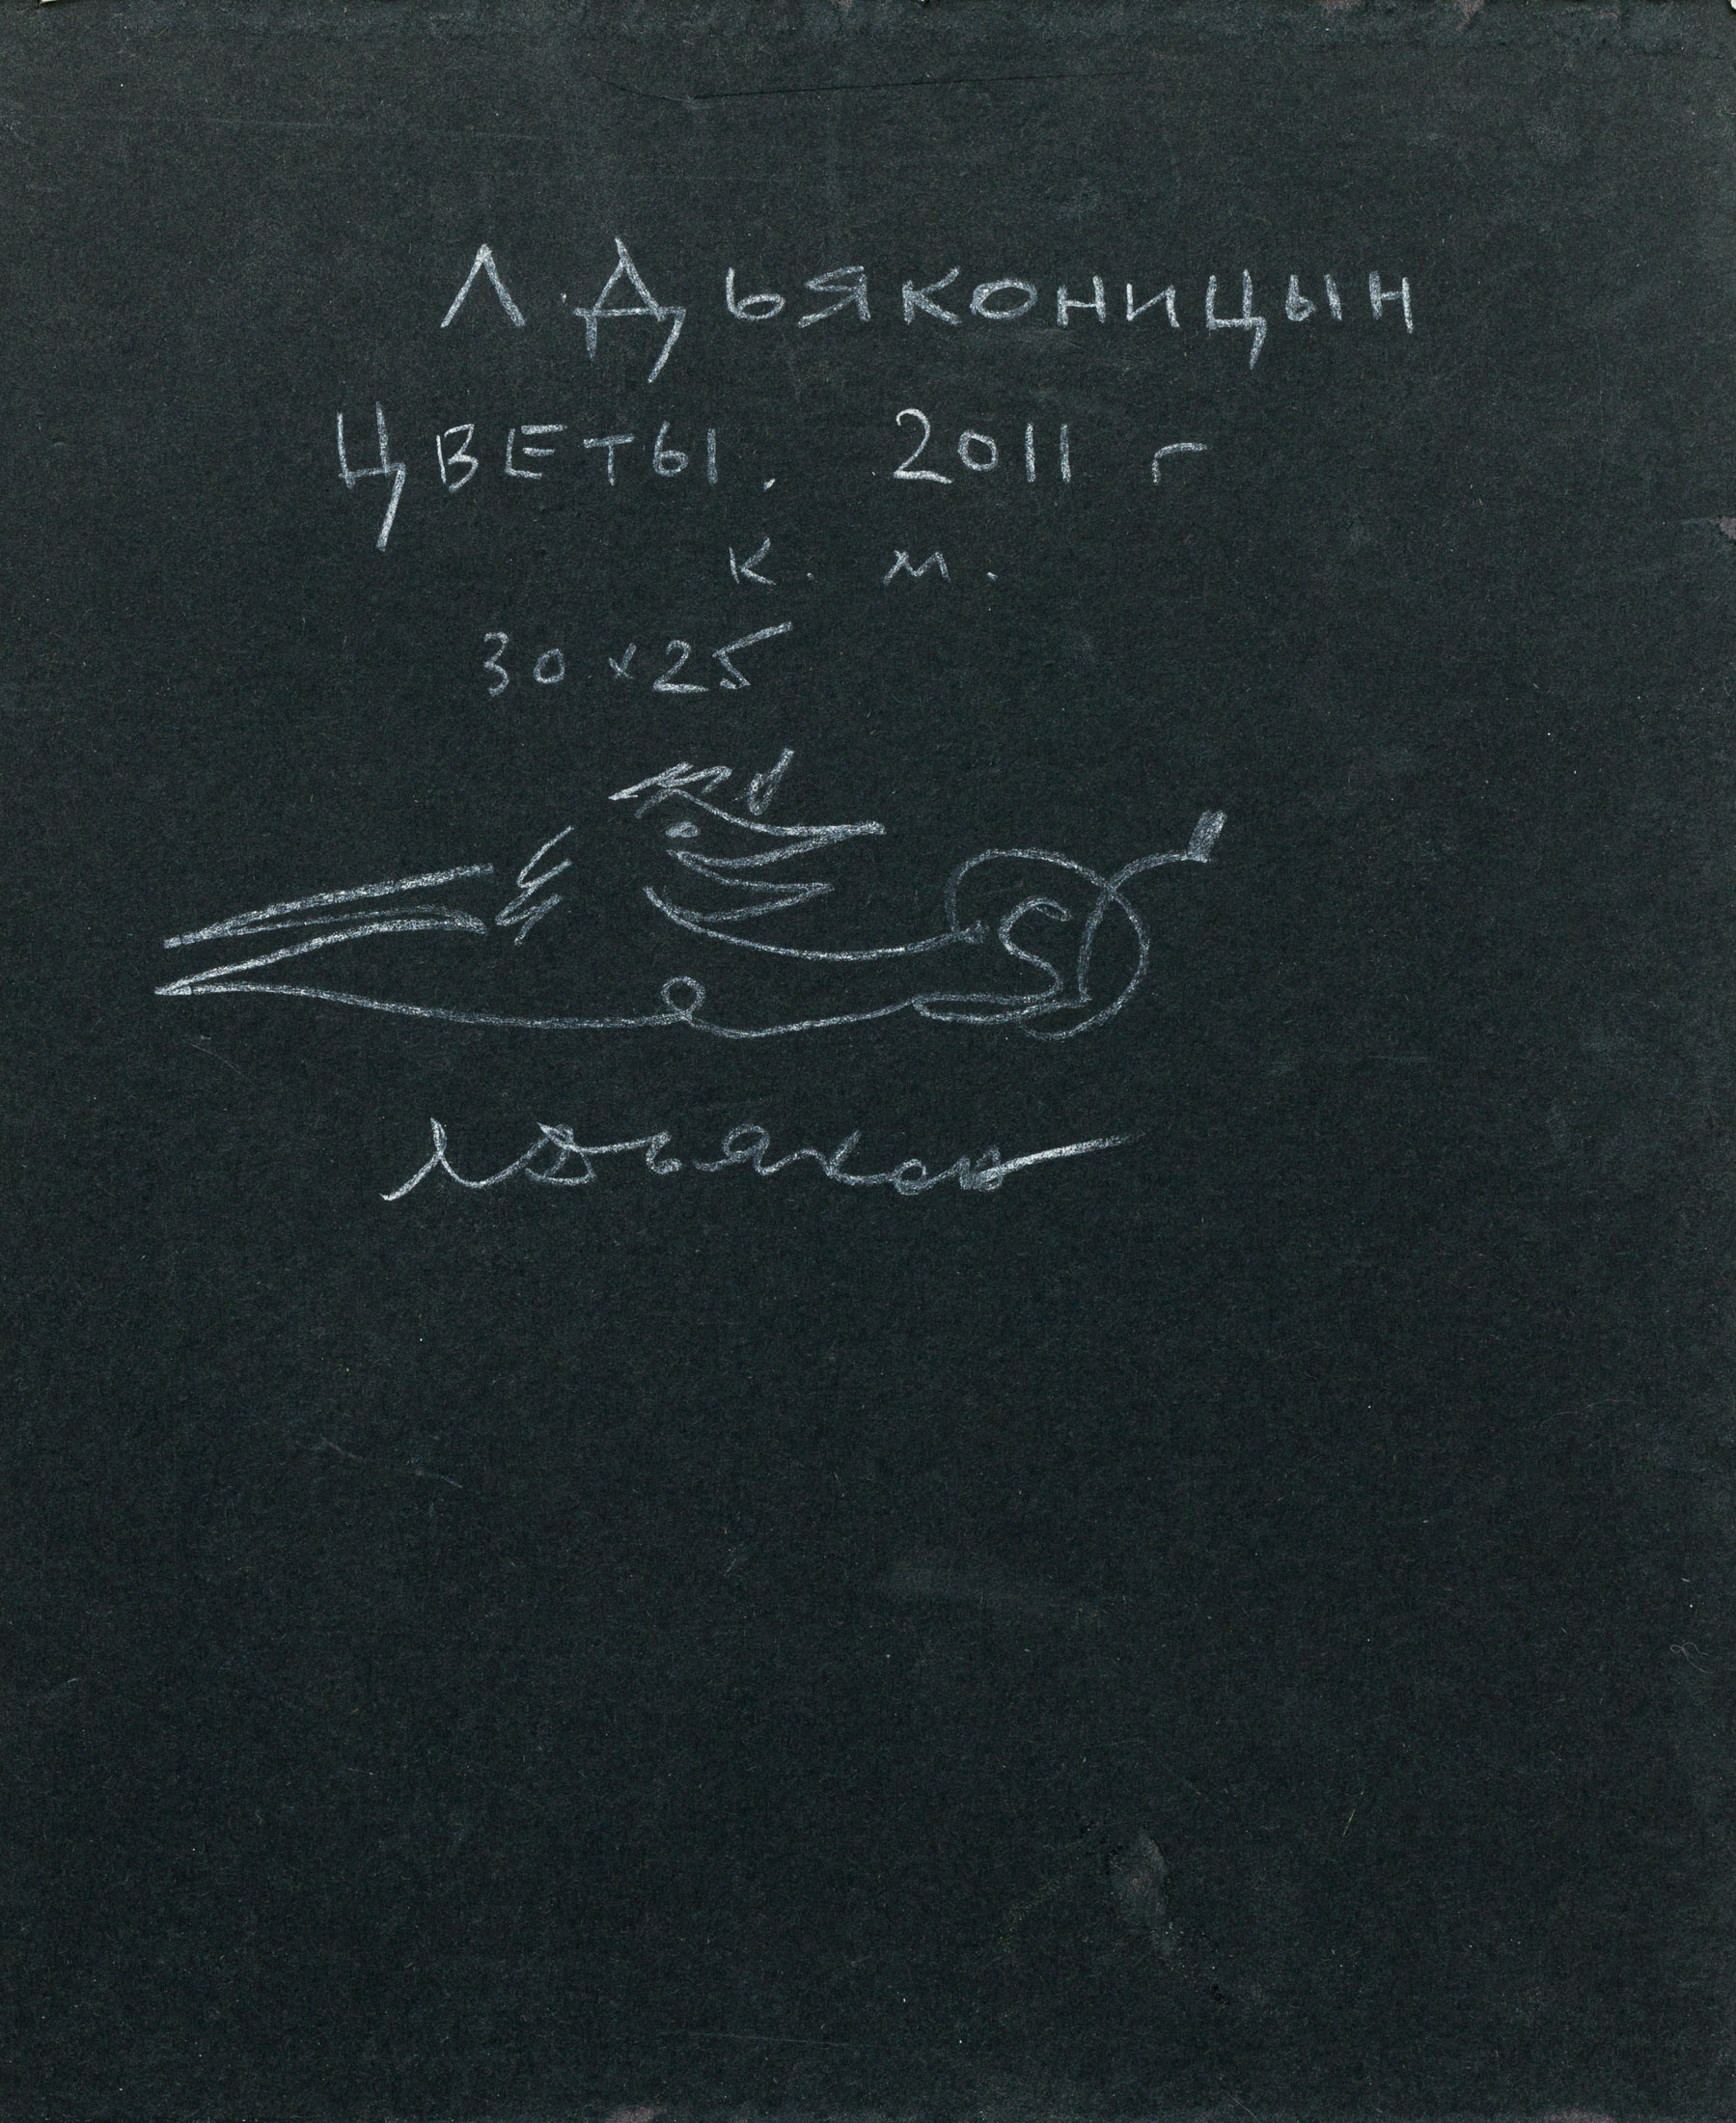 Л. Дьяконицын
Цветы. 2011 г
к. м.
30x25